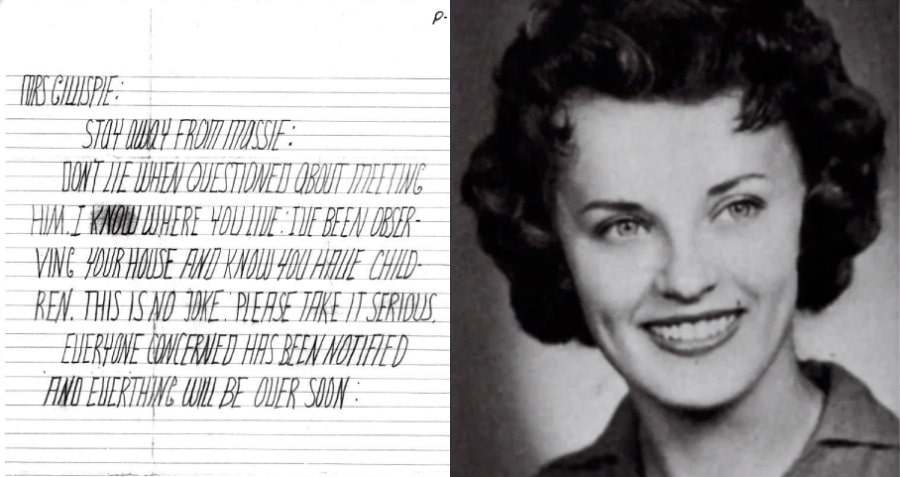 P-
MRS GILLISPIE:
STAY AWAY FROM MASSIE:
DON'T LIE WHEN QUESTIONED ABOUT MEETING
HIM. I KNOW WHERE YOU LIVE: I'VE BEEN OBSER-
VING YOUR HOUSE AND KNOW YOU HAVE CHILD-
REN. THIS IS NO JOKE. PLEASE TAKE IT SERIOUS.
EVERYONE CONCERNED HAS BEEN NOTIFIED
AND EVERTHING WILL BE OVER SOON: